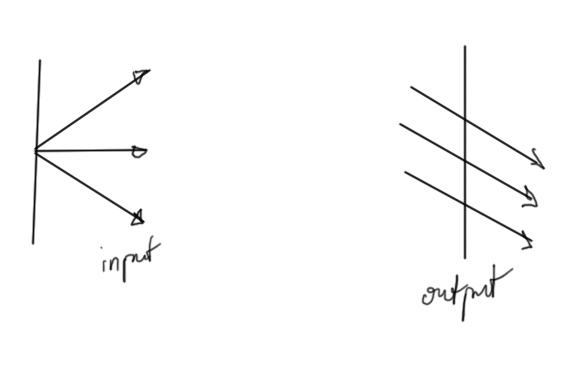 input
output